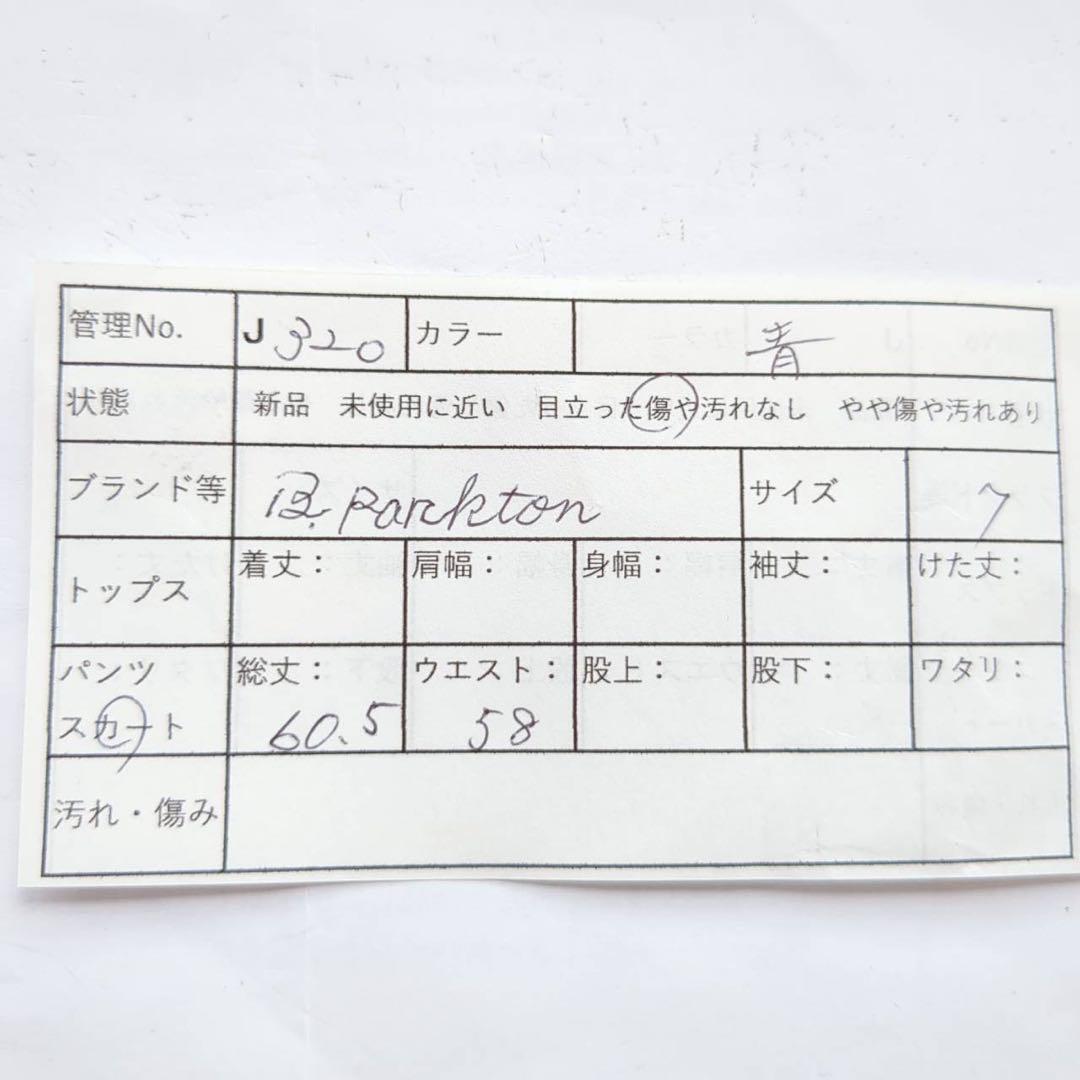 管理No. J 320 カラー 青
状態 新品 未使用に近い 目立った傷や汚れなし やや傷や汚れあり
ブランド等 B. Parkton サイズ 7
トップス 着丈: 肩幅: 身幅: 袖丈: けた丈:
パンツ 総丈: ウエスト: 股上: 股下: ワタリ:
スカート 60.5 58
汚れ・傷み